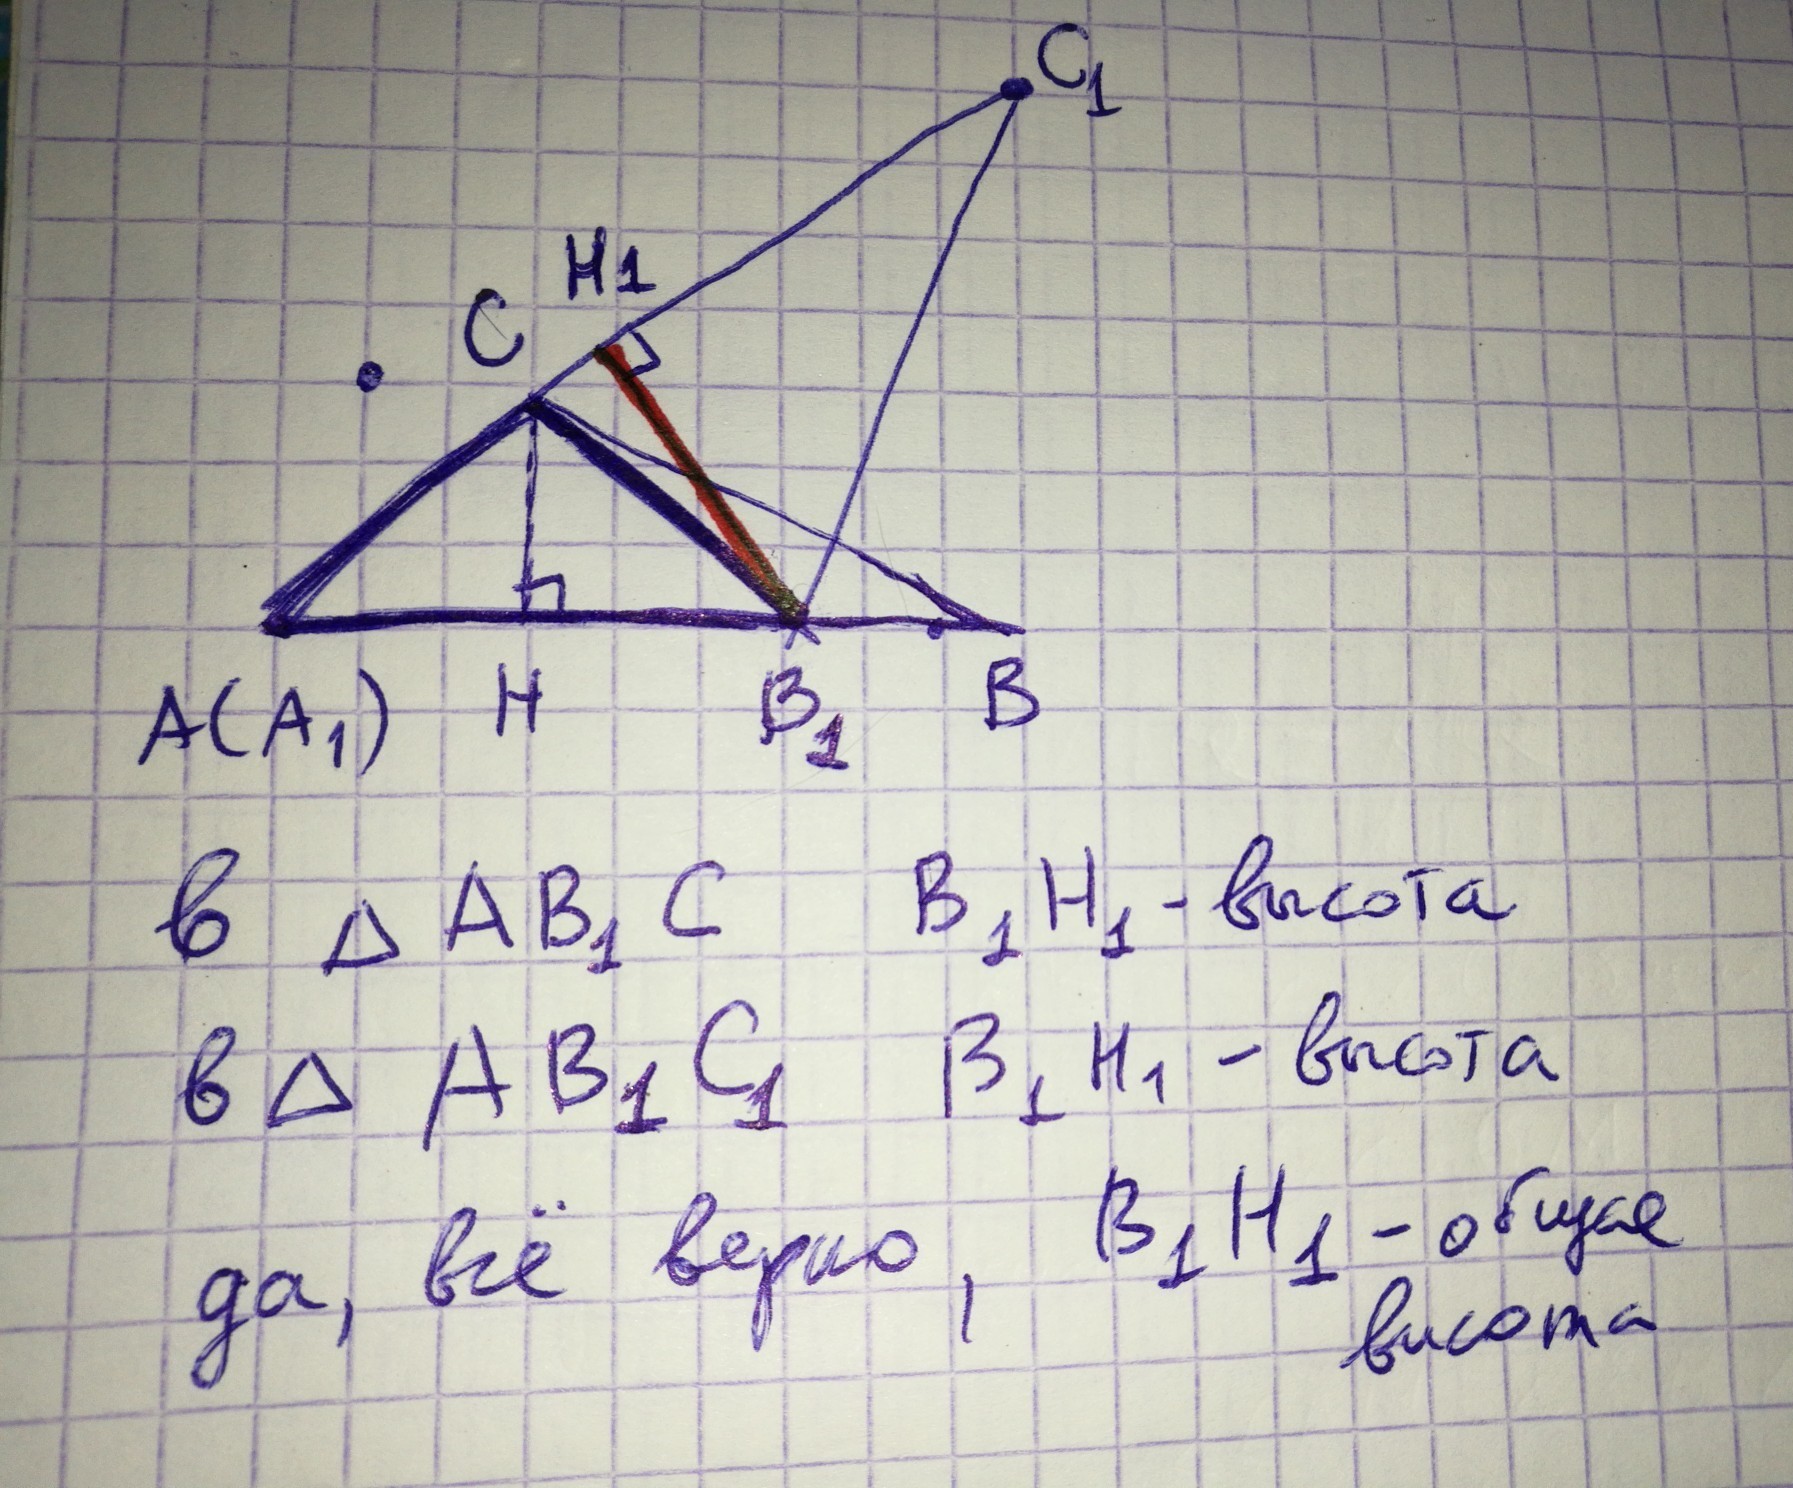 C₁
H1
C
A(A₁) H B₁ B
в △ AB₁C B₁H₁ - высота
в △ AB₁C₁ B₁H₁ - высота
да, всё верно, B₁H₁ - общая
высота